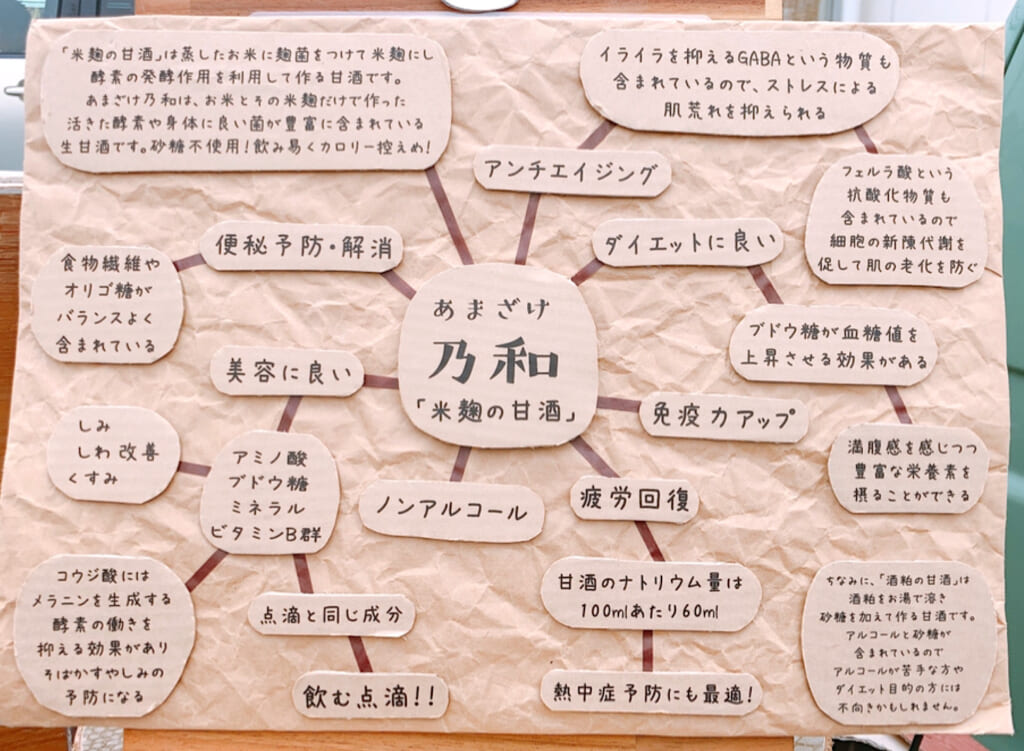 「米麹の甘酒」は蒸したお米に麹菌をつけて米麹にし
酵素の発酵作用を利用して作る甘酒です。
あまざけ乃和は、お米とその米麹だけで作った
活きた酵素や身体に良い菌が豊富に含まれている
生甘酒です。砂糖不使用!飲み易くカロリー控えめ!
イライラを抑えるGABAという物質も
含まれているので、ストレスによる
肌荒れを抑えられる
アンチエイジング
フェルラ酸という
抗酸化物質も
含まれているので
細胞の新陳代謝を
促して肌の老化を防ぐ
便秘予防・解消
ダイエットに良い
食物繊維や
オリゴ糖が
バランスよく
含まれている
あまざけ
乃和
「米麹の甘酒」
ブドウ糖が血糖値を
上昇させる効果がある
美容に良い
免疫力アップ
しみ
しわ改善
くすみ
アミノ酸
ブドウ糖
ミネラル
ビタミンB群
ノンアルコール
疲労回復
満腹感を感じつつ
豊富な栄養素を
摂ることができる
コウジ酸には
メラニンを生成する
酵素の働きを
抑える効果があり
そばかすやしみの
予防になる
点滴と同じ成分
飲む点滴!!
甘酒のナトリウム量は
100mlあたり60ml
熱中症予防にも最適!
ちなみに、「酒粕の甘酒」は
酒粕をお湯で溶き
砂糖を加えて作る甘酒です。
アルコールと砂糖が
含まれているので
アルコールが苦手な方や
ダイエット目的の方には
不向きかもしれません。